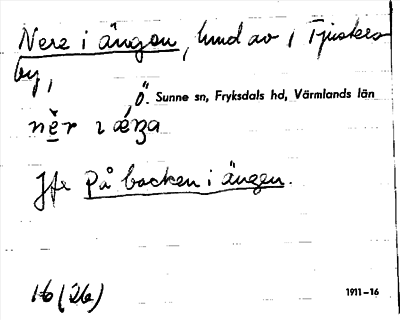 Nere i ängen, hmd av i Tjuskes-
by,
Ö. Sunne sn, Fryksdals hd, Värmlands län
Jfr På backen i ängen.
16 (26)
1911–16